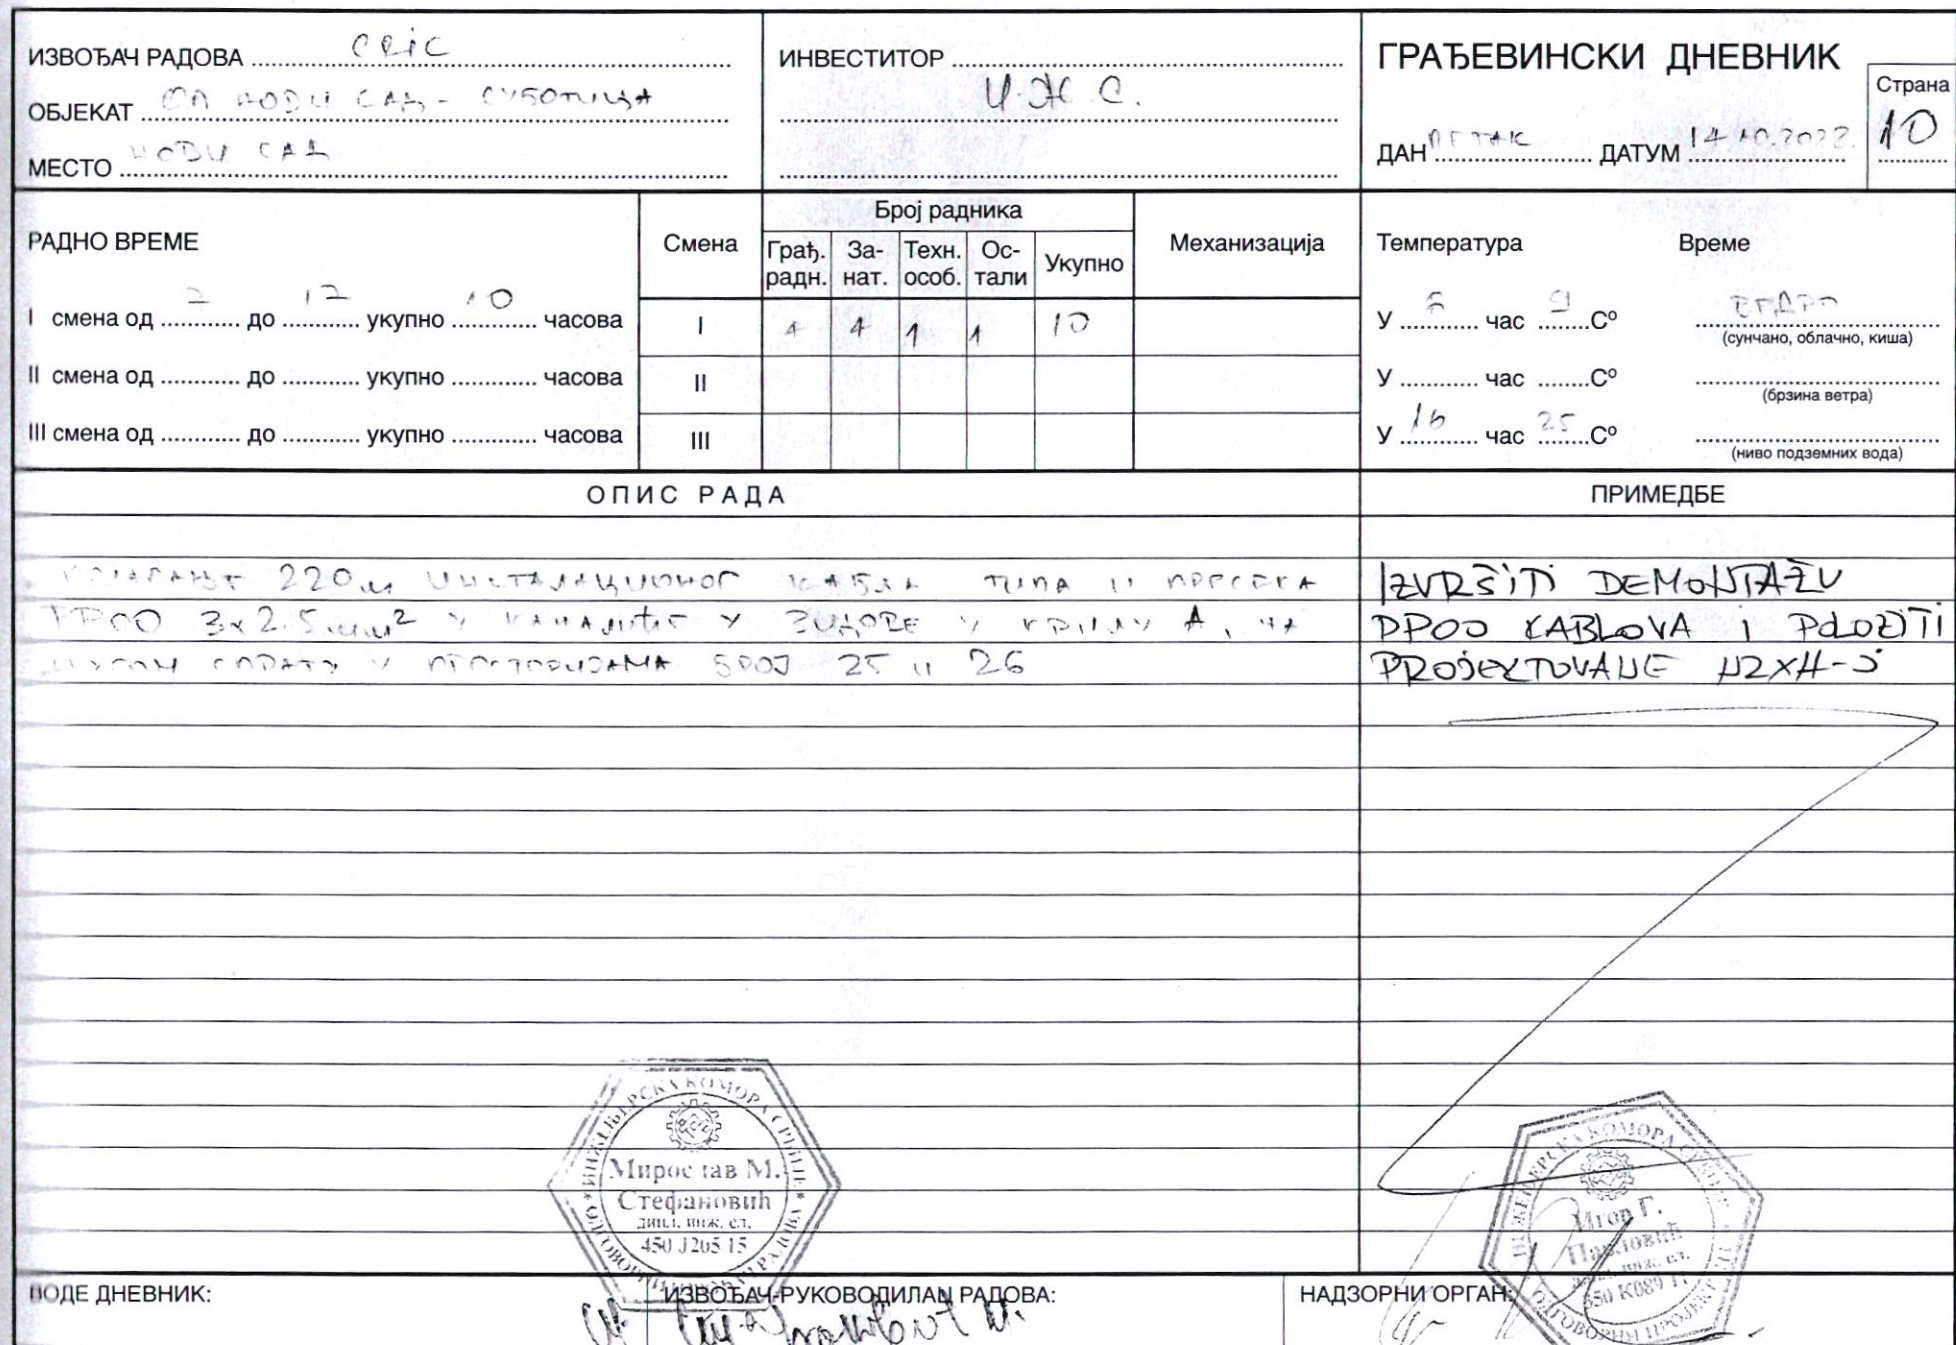 ИЗВОЂАЧ РАДОВА CRIC
ОБЈЕКАТ НОВИ САД - СУБОТИЦА
МЕСТО НОВИ САД
ИНВЕСТИТОР
И.Ж.С.
ГРАЂЕВИНСКИ ДНЕВНИК
Страна
10
ДАН ПЕТАК ДАТУМ 14.10.2022.
РАДНО ВРЕМЕ
I смена од 7 до 17 укупно 10 часова
II смена од до укупно часова
III смена од до укупно часова
Смена
Број радника
Грађ. радн. За-нат. Техн. особ. Ос-тали Укупно
Механизација
I 4 4 1 1 10
II
III
Температура Време
У час 9 Cº ВЕДРО
(сунчано, облачно, киша)
У час Cº
(брзина ветра)
У 16 час 25 Cº
(ниво подземних вода)
ОПИС РАДА
ПРИМЕДБЕ
ПОЛАГАЊЕ 220м ИНСТАЛАЦИОНОГ КАБЛА ТИПА И ПРЕСЕКА
PPOO 3x2.5мм² У КАНАЛИЦЕ У ЗИДОВЕ У КРИЛУ А, НА
СПРАТУ У ПРОСТОРИЈАМА БРОЈ 25 и 26
IZVRŠITI DEMONTAŽU
PPOO KABLOVA I POLOŽITI
PROJEKTOVANE N2XH-J
ИНЖЕЊЕРСКА КОМОРА СРБИЈЕ
Мирослав М.
Стефановић
дипл. инж. ел.
450 J265 15
ОДГОВОРНИ ИЗВОЂАЧ РАДОВА
ИНЖЕЊЕРСКА КОМОРА СРБИЈЕ
Игор Г.
Павловић
дипл. инж. ел.
350 K089 11
ОДГОВОРНИ ПРОЈЕКТАНТ
ВОДЕ ДНЕВНИК:
ИЗВОЂАЧ-РУКОВОДИЛАЦ РАДОВА:
НАДЗОРНИ ОРГАН: